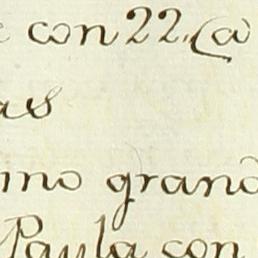 e con 22. Ca
as
nno grand
Paula con